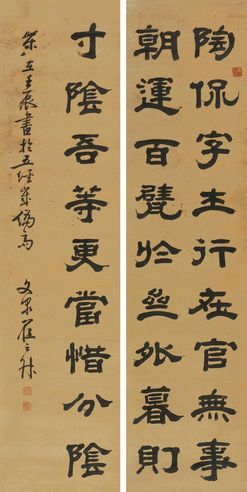 陶侃字士行在官無事
朝運百甓於齋外暮則
寸陰吾等更當惜分陰
歲在壬辰書於五經
文泉崔